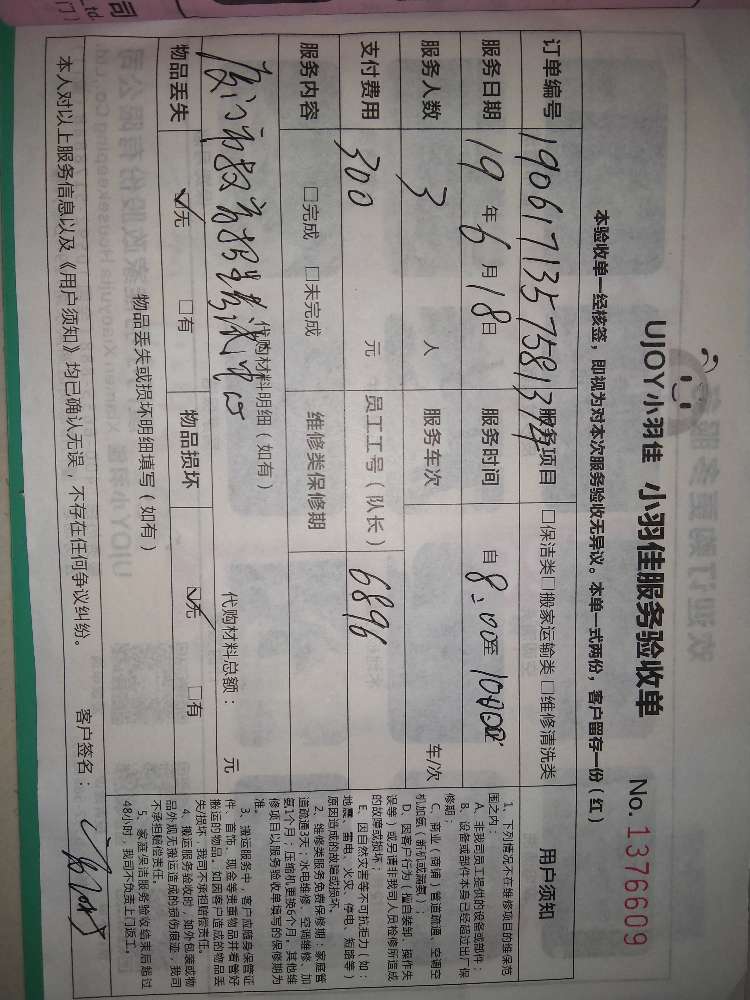 UJOY小羽佳 小羽佳服务验收单 No. 1376609
本验收单一经核签,即视为对本次服务验收无异议。本单一式两份,客户留存一份(红)
订单编号 190617135758131 服务项目 □保洁类□搬家运输类□维修清洗类
服务日期 19 年 6 月 18 日 服务时间 自 8:00 至 10:00
服务人数 3 人 服务车次 车/次
支付费用 300 元 员工工号(队长) 6896
服务内容 □完成 □未完成 维修类保修期
代购材料明细(如有) 代购材料总额: 元
厦门市教育招生考试中心
物品丢失 ☑无 □有 物品损坏 ☑无 □有
物品丢失或损坏明细填写(如有)
本人对以上服务信息以及《用户须知》均已确认无误,不存在任何争议纠纷。 客户签名:
用户须知
1、下列情况不在维修项目的维保范
围之内:
A、非我司员工提供的设备或部件;
B、设备或部件本身已经超过出厂保
修期;
C、商业(商铺)管道疏通、空调空
机加氨(新机或漏氨)
D、因客户行为(擅自装卸、操作失
误等)或另请非我司人员检修所造成
的故障或损坏;
E、因自然灾害等不可抗拒力(如:
地震、雷电、火灾、停电、短路等)
原因造成的故障或损坏。
2、维修类服务免费保修期:家庭管
道疏通3天;水电维修、空调维修、加
氨1个月;压缩机更换6个月。其他维
修项目以服务验收单填写的保修期为
准。
3、搬运服务中,客户应随身保管证
件、首饰、现金等贵重物品并看管好
搬运的物品,如因客户造成的物品丢
失/损坏,我司不承担赔偿责任。
4、搬运服务验收时,如外包装或物
品外观无搬运造成的损伤痕迹,我司
不承担赔偿责任。
5、家庭保洁服务验收结束后超过
48小时,我司不负责上门返工。